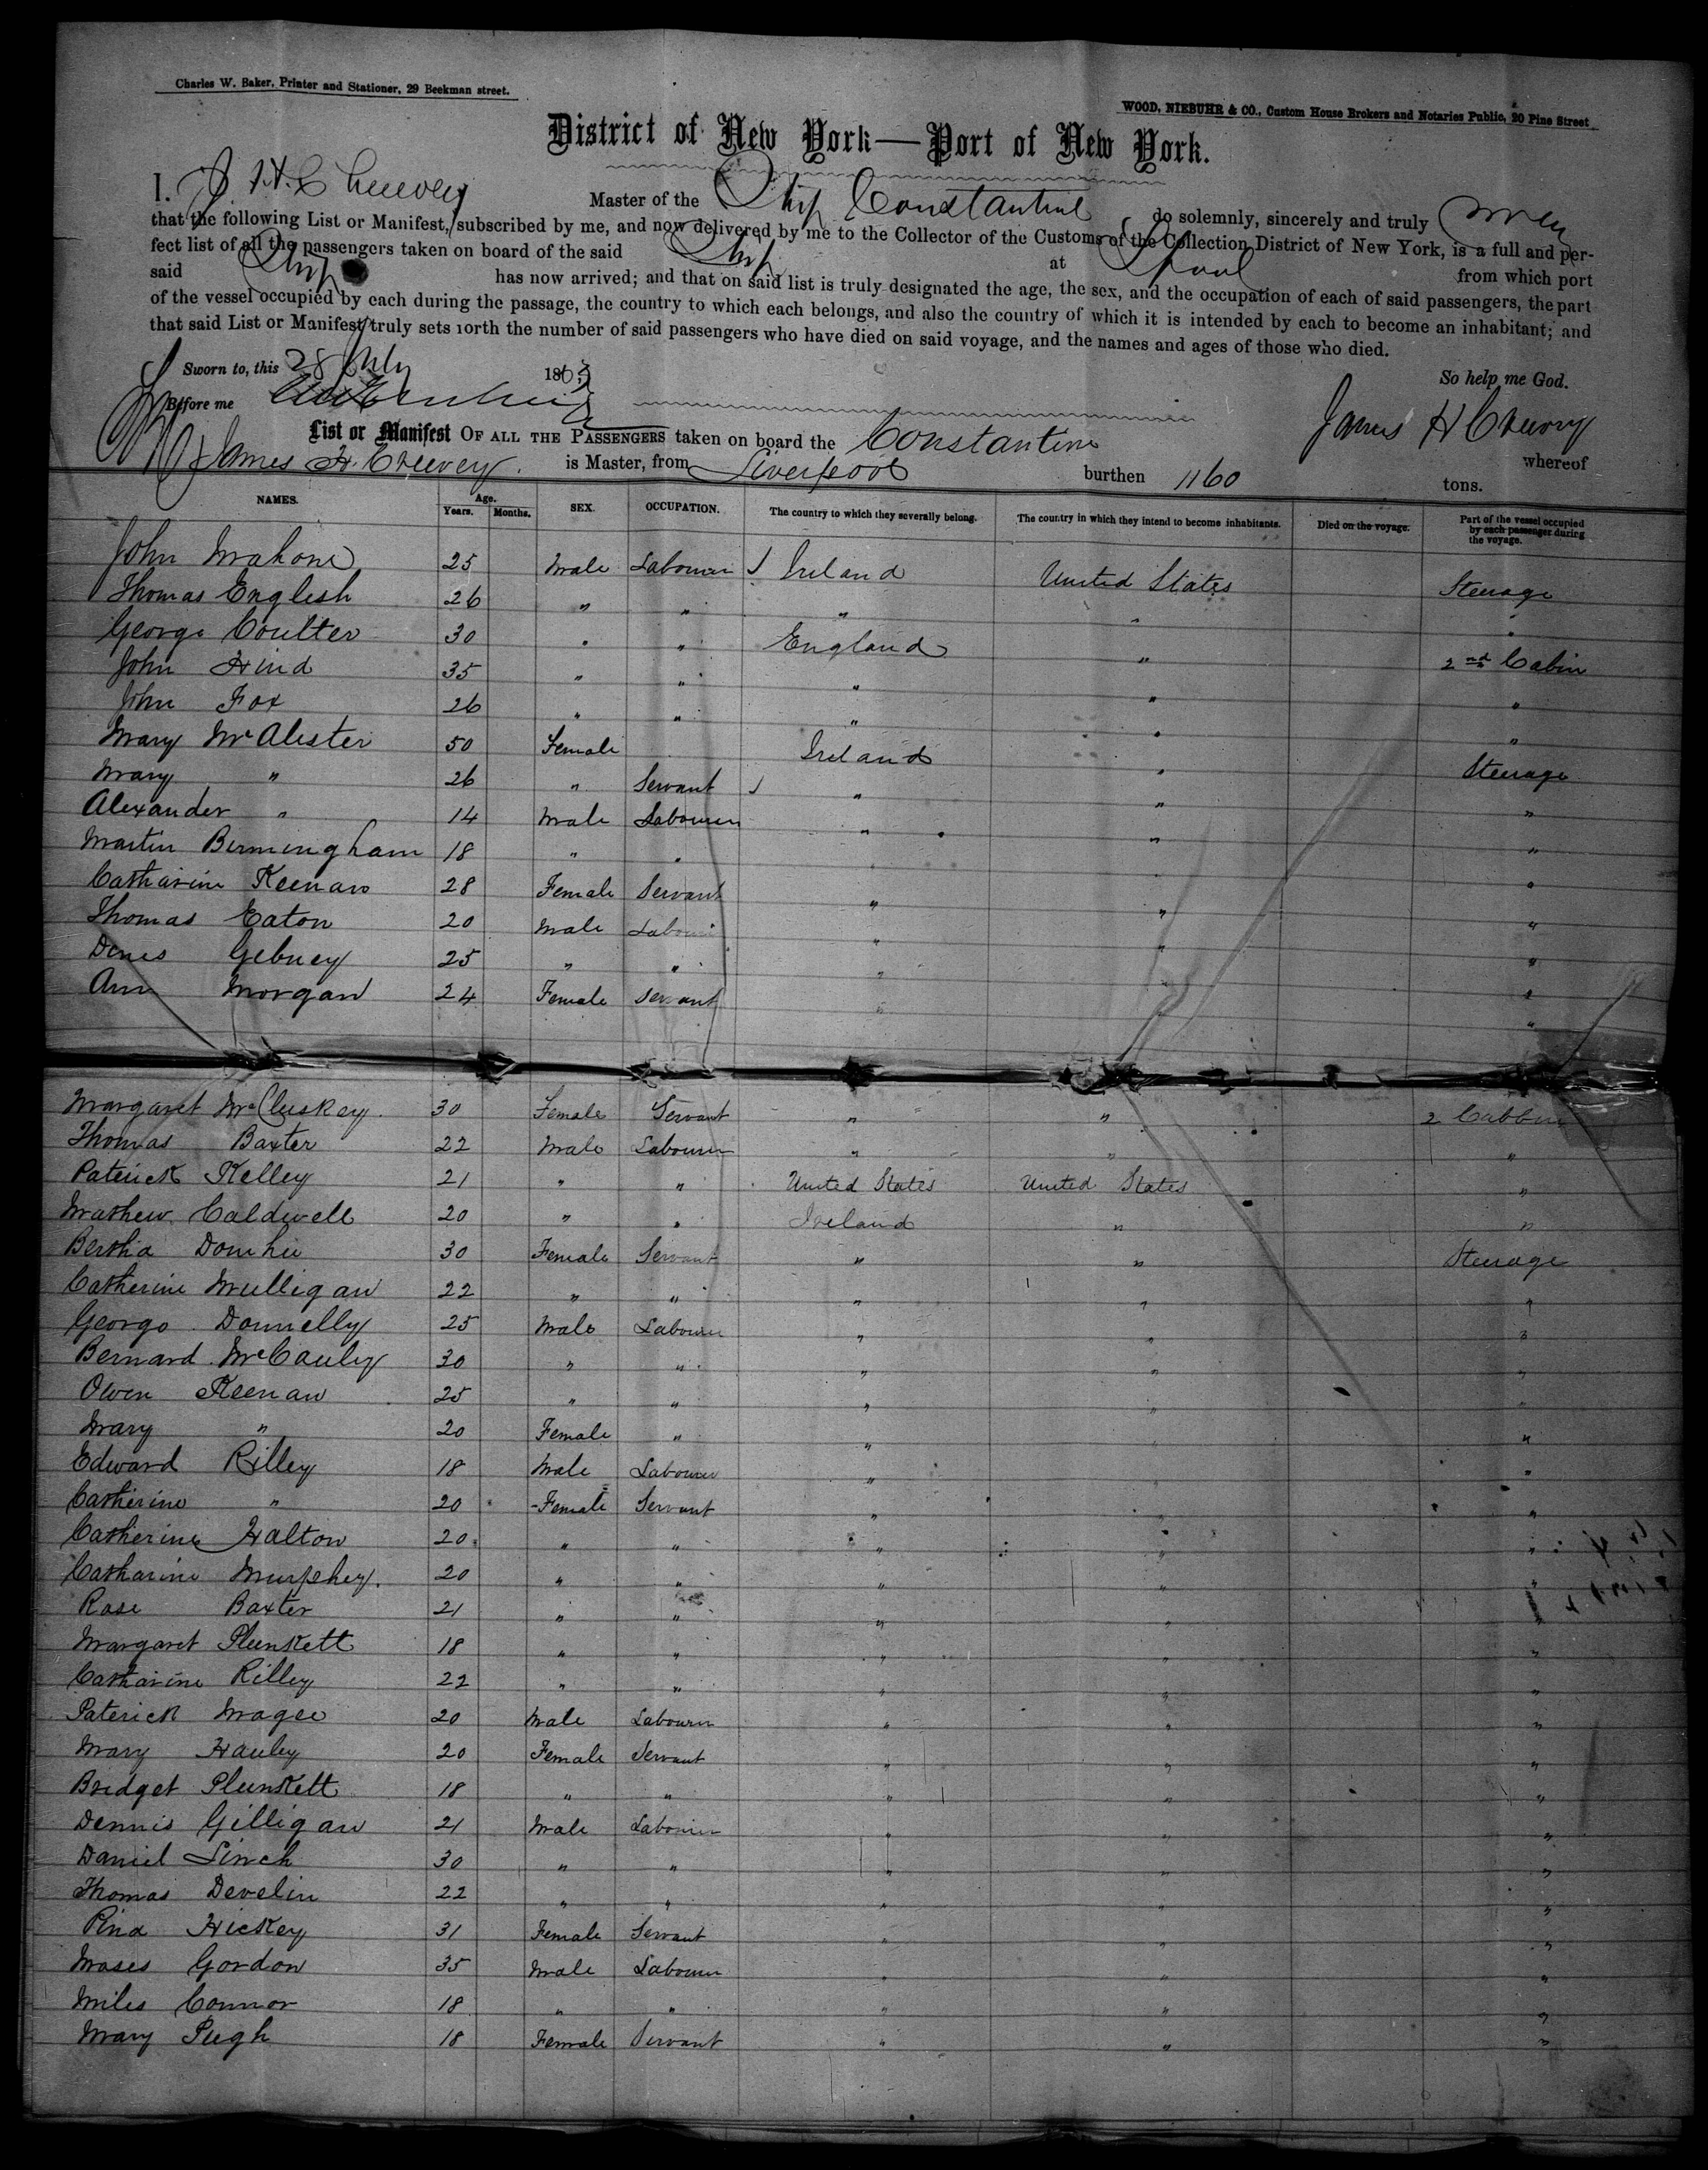 Charles W. Baker, Printer and Stationer, 29 Beekman street.
WOOD, NIEBUHR & CO., Custom House Brokers and Notaries Public, 20 Pine Street
District of New York—Port of New York.
I, J H Cheevey Master of the Ship Constantine do solemnly, sincerely and truly swear
that the following List or Manifest, subscribed by me, and now delivered by me to the Collector of the Customs of the Collection District of New York, is a full and per-
fect list of all the passengers taken on board of the said Ship at Lpool from which port
said Ship has now arrived; and that on said list is truly designated the age, the sex, and the occupation of each of said passengers, the part
of the vessel occupied by each during the passage, the country to which each belongs, and also the country of which it is intended by each to become an inhabitant; and
that said List or Manifest truly sets forth the number of said passengers who have died on said voyage, and the names and ages of those who died.
Sworn to, this 28 July 1863 So help me God.
Before me James H Creevey
List or Manifest OF ALL THE PASSENGERS taken on board the Constantine whereof
James H. Creevey. is Master, from Liverpool burthen 1160 tons.
NAMES. Age. Years. Months. SEX. OCCUPATION. The country to which they severally belong. The country in which they intend to become inhabitants. Died on the voyage. Part of the vessel occupied by each passenger during the voyage.
John Mahone 25 Male Labourer Ireland United States Steerage
Thomas English 26 " " " " "
George Coulter 30 " " England " 2nd Cabin
John Hind 35 " " " " "
John Fox 26 " " " " "
Mary McAlister 50 Female Ireland " Steerage
Mary " 26 " Servant " " "
Alexander " 14 Male Labourer " " "
Martin Birmingham 18 " " " " "
Catharine Keenan 28 Female Servant " " "
Thomas Eaton 20 Male Labourer " " "
Denis Gebney 25 " " " " "
Ann Morgan 24 Female Servant " " "
Margaret McCluskey. 30 Female Servant " " 2 Cabbin
Thomas Baxter 22 Male Labourer " " "
Paterick Kelley 21 " " United States United States "
Mathew Caldwell 20 " " Ireland " "
Bertha Donuhue 30 Female Servant " " Steerage
Catherine Mulligan 22 " " " " "
George Donnelly 25 Male Labourer " " "
Bernard McCauley 30 " " " " "
Owen Keenan 25 " " " " "
Mary " 20 Female " " " "
Edward Rilley 18 Male Labourer " " "
Catherine " 20 Female Servant " " "
Catherine Halton 20 " " " " "
Catharine Murphey. 20 " " " " "
Rose Baxter 21 " " " " "
Margaret Plunkett 18 " " " " "
Catharine Rilley 22 " " " " "
Paterick Magee 20 Male Labourer " " "
Mary Hauley 20 Female Servant " " "
Bridget Plunkett 18 " " " " "
Dennis Gilligan 21 Male Labourer " " "
Daniel Linch 30 " " " " "
Thomas Develin 22 " " " " "
Pina Hickey 31 Female Servant " " "
Moses Gordon 35 Male Labourer " " "
Miles Connor 18 " " " " "
Mary Pugh 18 Female Servant " " "